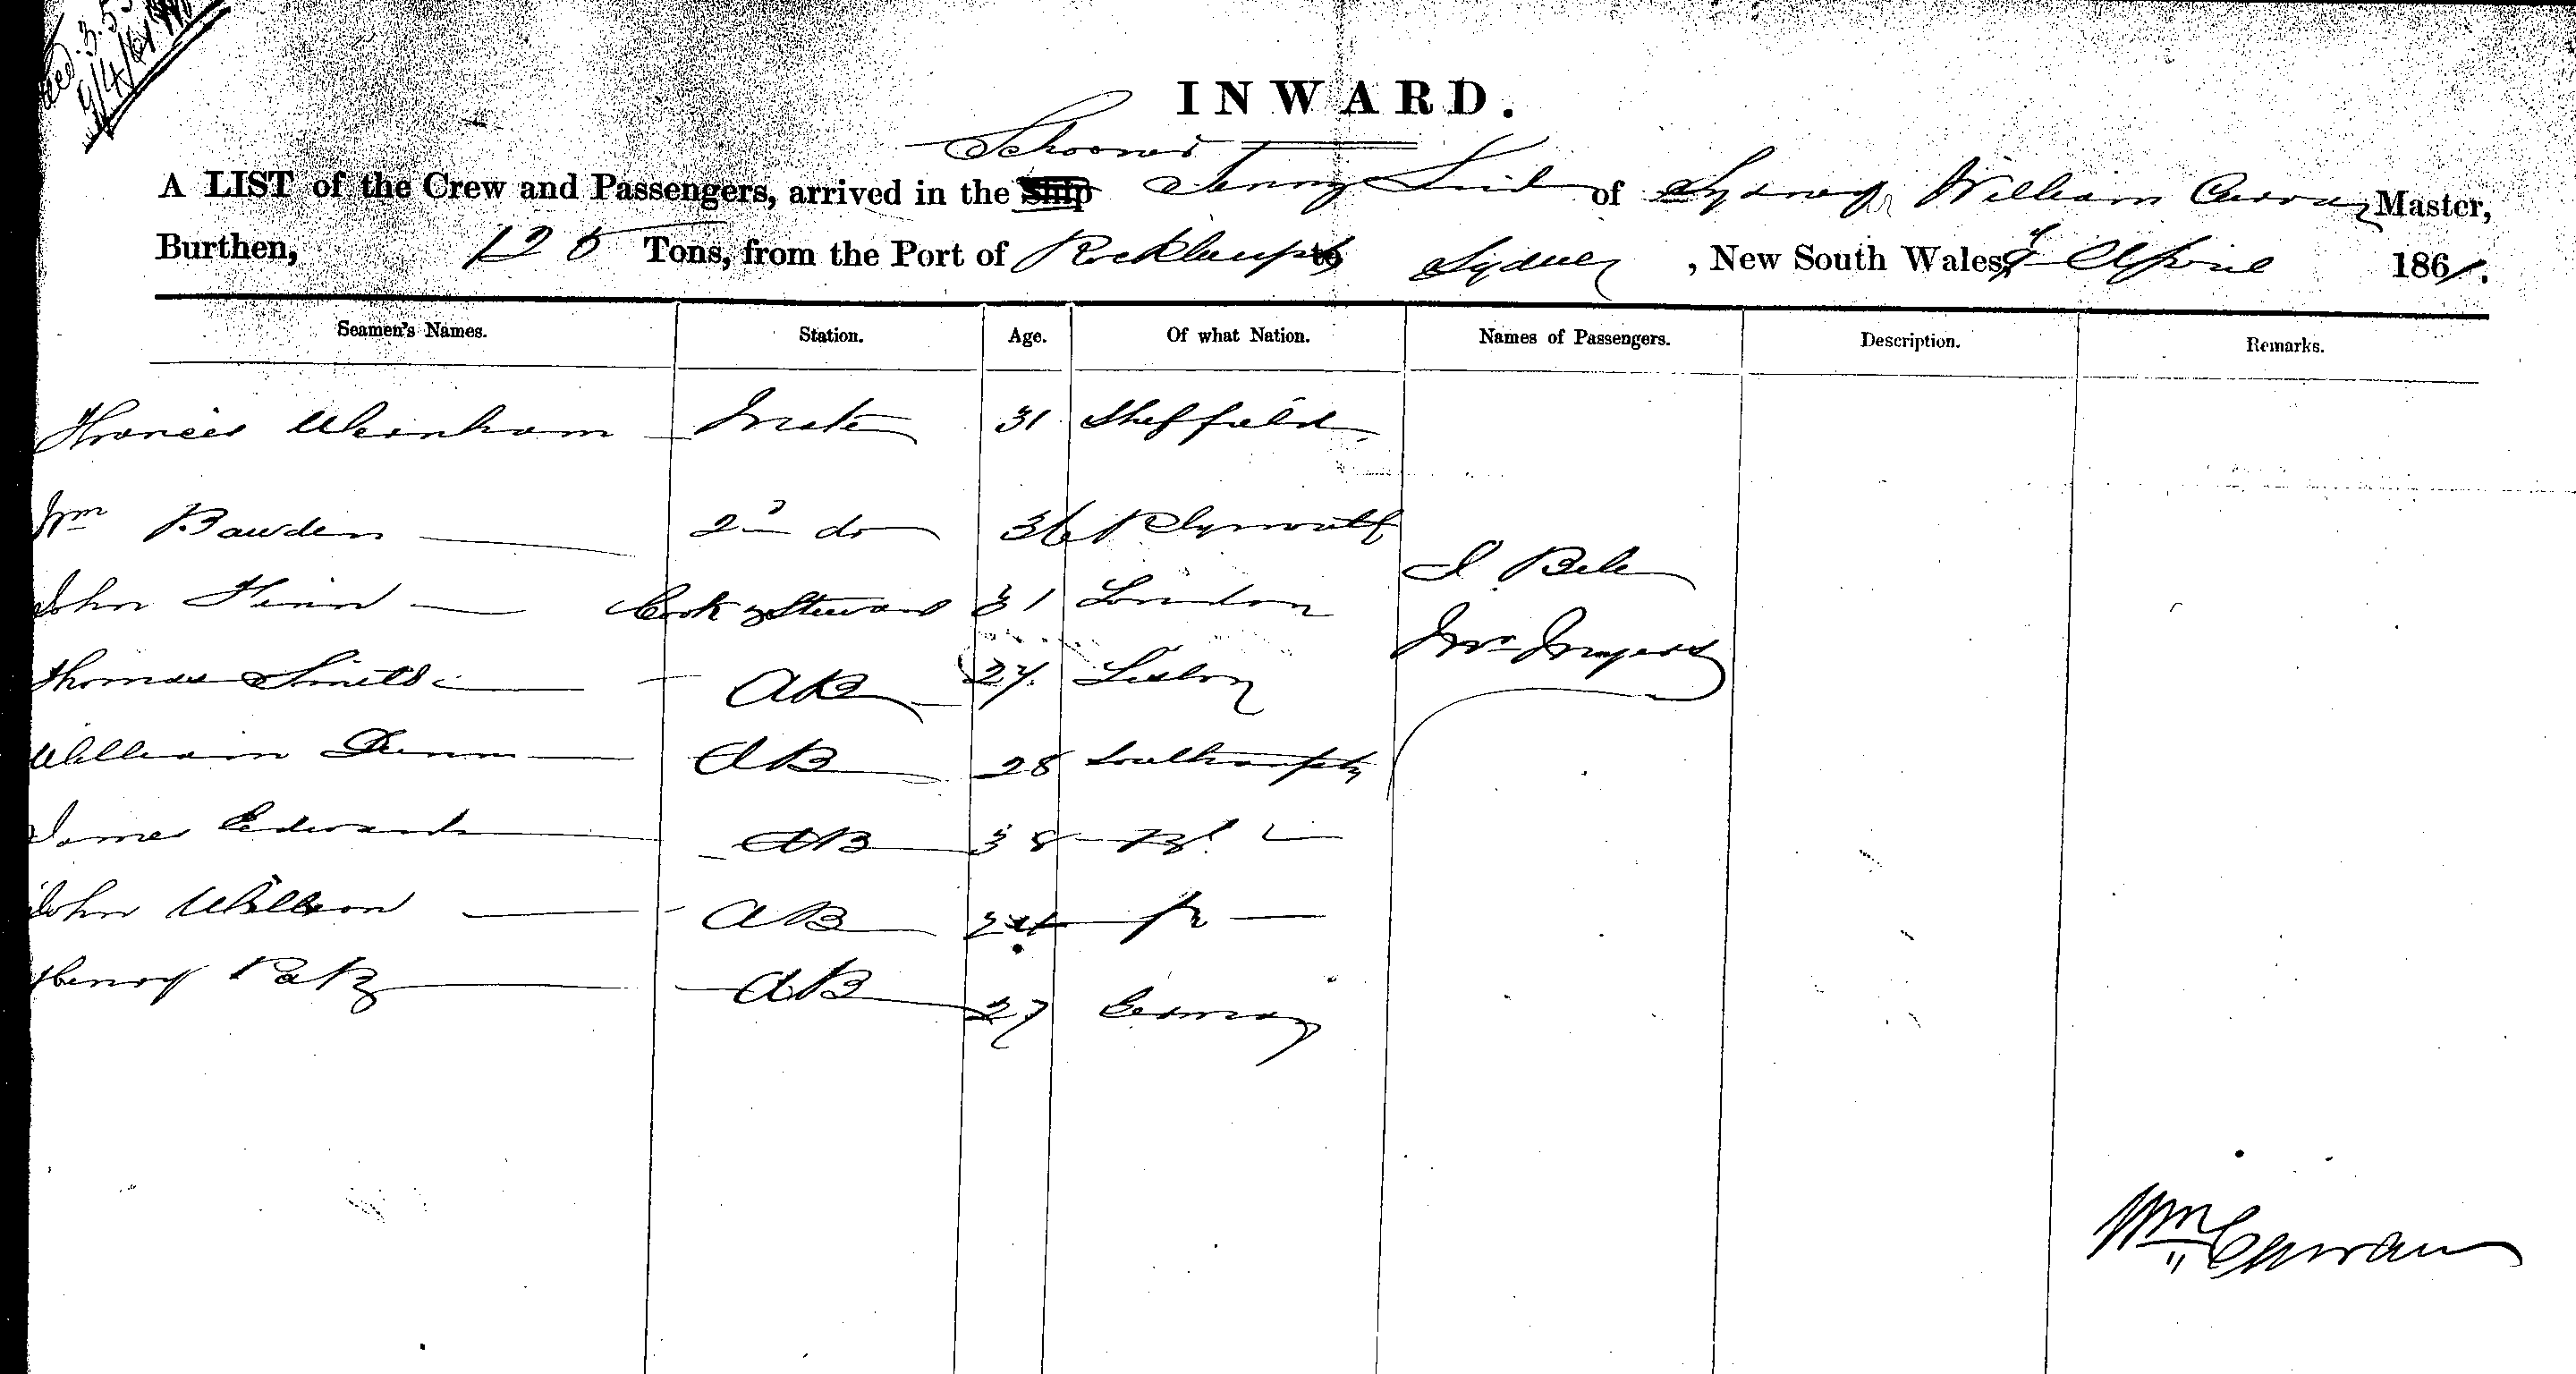 3.55
9/4/61
INWARD.
Schooner
A LIST of the Crew and Passengers, arrived in the Ship Jenny Lind of Sydney, William Curran Master,
Burthen, 120 Tons, from the Port of Rockhampt to Sydney, New South Wales, 9 April 1861.
Seamen's Names. Station. Age. Of what Nation. Names of Passengers. Description. Remarks.
Francis Wheinham Mate 31 Sheffield
Wm Bawden 2nd do 36 Plymouth
J. Bele
John Finn Cook & Steward 31 London
Mrs Myers
Thomas Smith AB 27 Lisbon
William Dunn AB 28 Southampton
James Edwards AB 38
John Willson AB
Henry Patz AB 27 Germany
Wm Curran